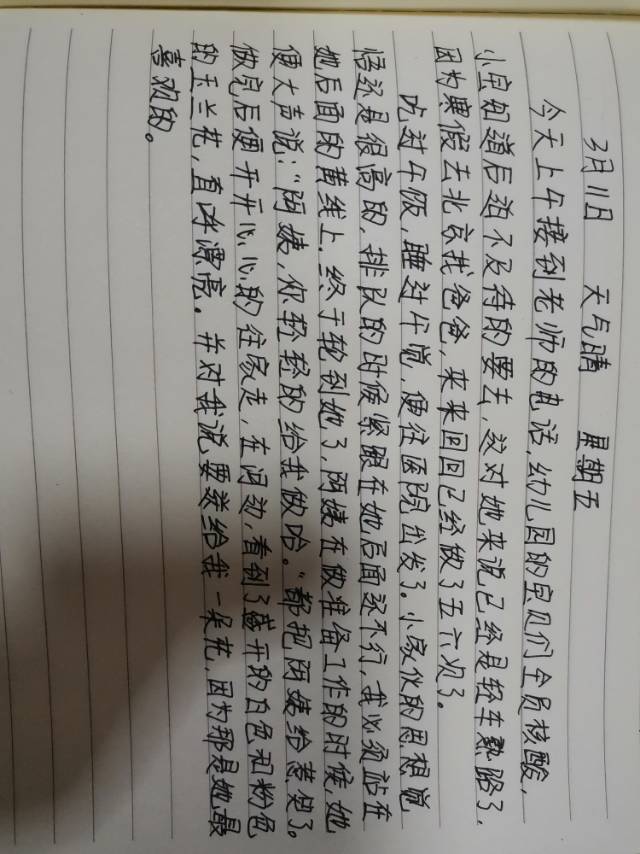 3月11日 天气晴 星期五
今天上午接到老师的电话,幼儿园的宝贝们全员核酸,
小宝知道后迫不及待的要去,这对她来说已经是轻车熟路了,
因为寒假去北京找爸爸,来来回回已经做了五六次了。
吃过午饭,睡过午觉,便往医院出发了。小家伙的思想觉
悟还是很高的,排队的时候紧跟在她后面还不行,我必须站在
她后面的黄线上。终于轮到她了,阿姨在做准备工作的时候,她
便大声说:“阿姨,你轻轻的给我做哈。”都把阿姨给惹笑了。
做完后便开开心心的往家走,在活动,看到了盛开的白色和粉色
的玉兰花,直呼漂亮。并对我说要送给我一朵花,因为那是她最
喜欢的。